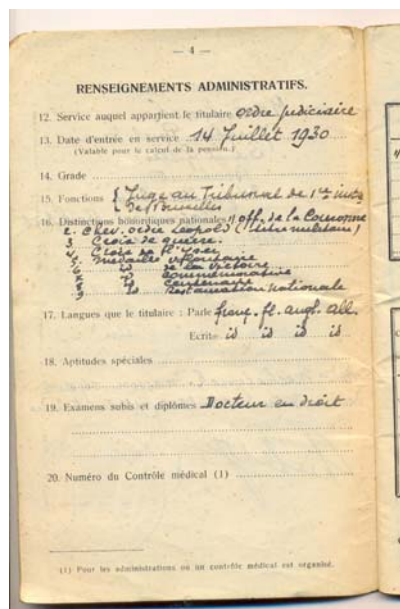 — 4 —
RENSEIGNEMENTS ADMINISTRATIFS.
12. Service auquel appartient le titulaire Ordre judiciaire
13. Date d'entrée en service 14 Juillet 1930
(Valable pour le calcul de la pension.)
14. Grade
15. Fonctions { Juge au Tribunal de 1re inst
de Bruxelles
16. Distinctions honorifiques nationales 1) off. de la Couronne
2. Chev. ordre Léopold (titre militaire)
3 Croix de guerre.
4 Croix de l'Yser
5 Médailles Volontaire
6 id de la Victoire
7 id Commémorative
8 id Centenaire
9 id Restauration nationale
17. Langues que le titulaire : Parle franç. fl. angl. all.
Ecrit id id id id
18. Aptitudes spéciales
19. Examens subis et diplômes Docteur en droit
20. Numéro du Contrôle médical (1)
(1) Pour les administrations où un contrôle médical est organisé.